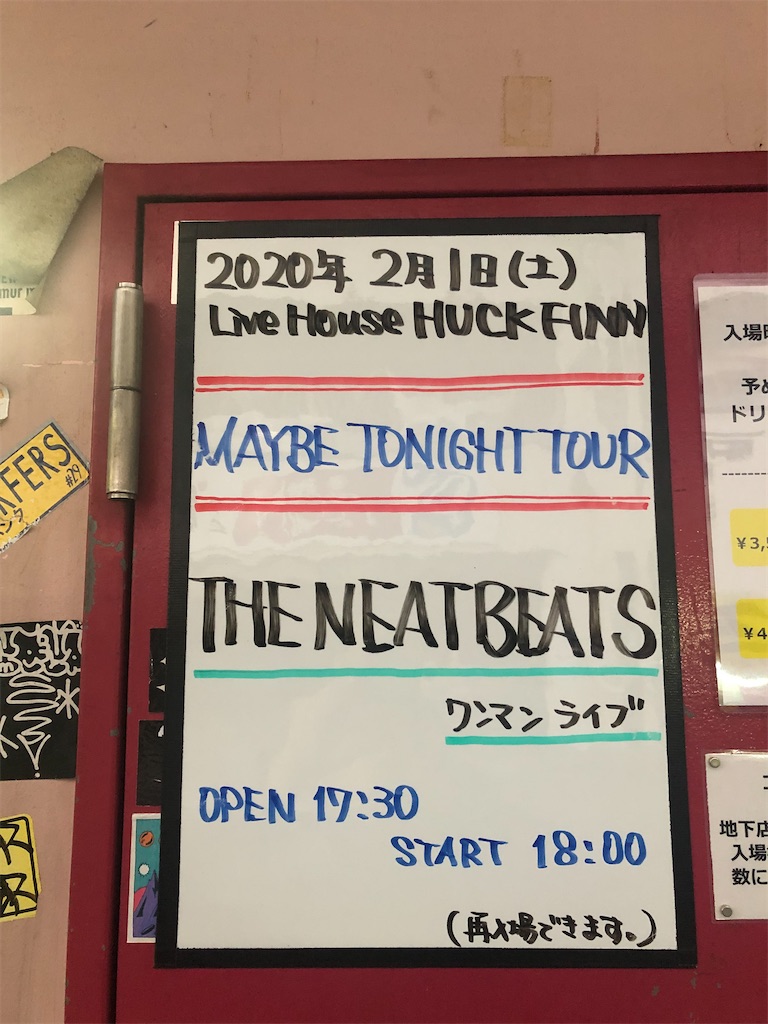 2020年 2月1日(土)
Live House HUCK FINN
MAYBE TONIGHT TOUR
THE NEATBEATS
ワンマン ライブ
OPEN 17:30
START 18:00
(再入場できます。)
AFERS
#29
入場
予め
ドリ
¥3,5
¥4
地下店
入場
数に